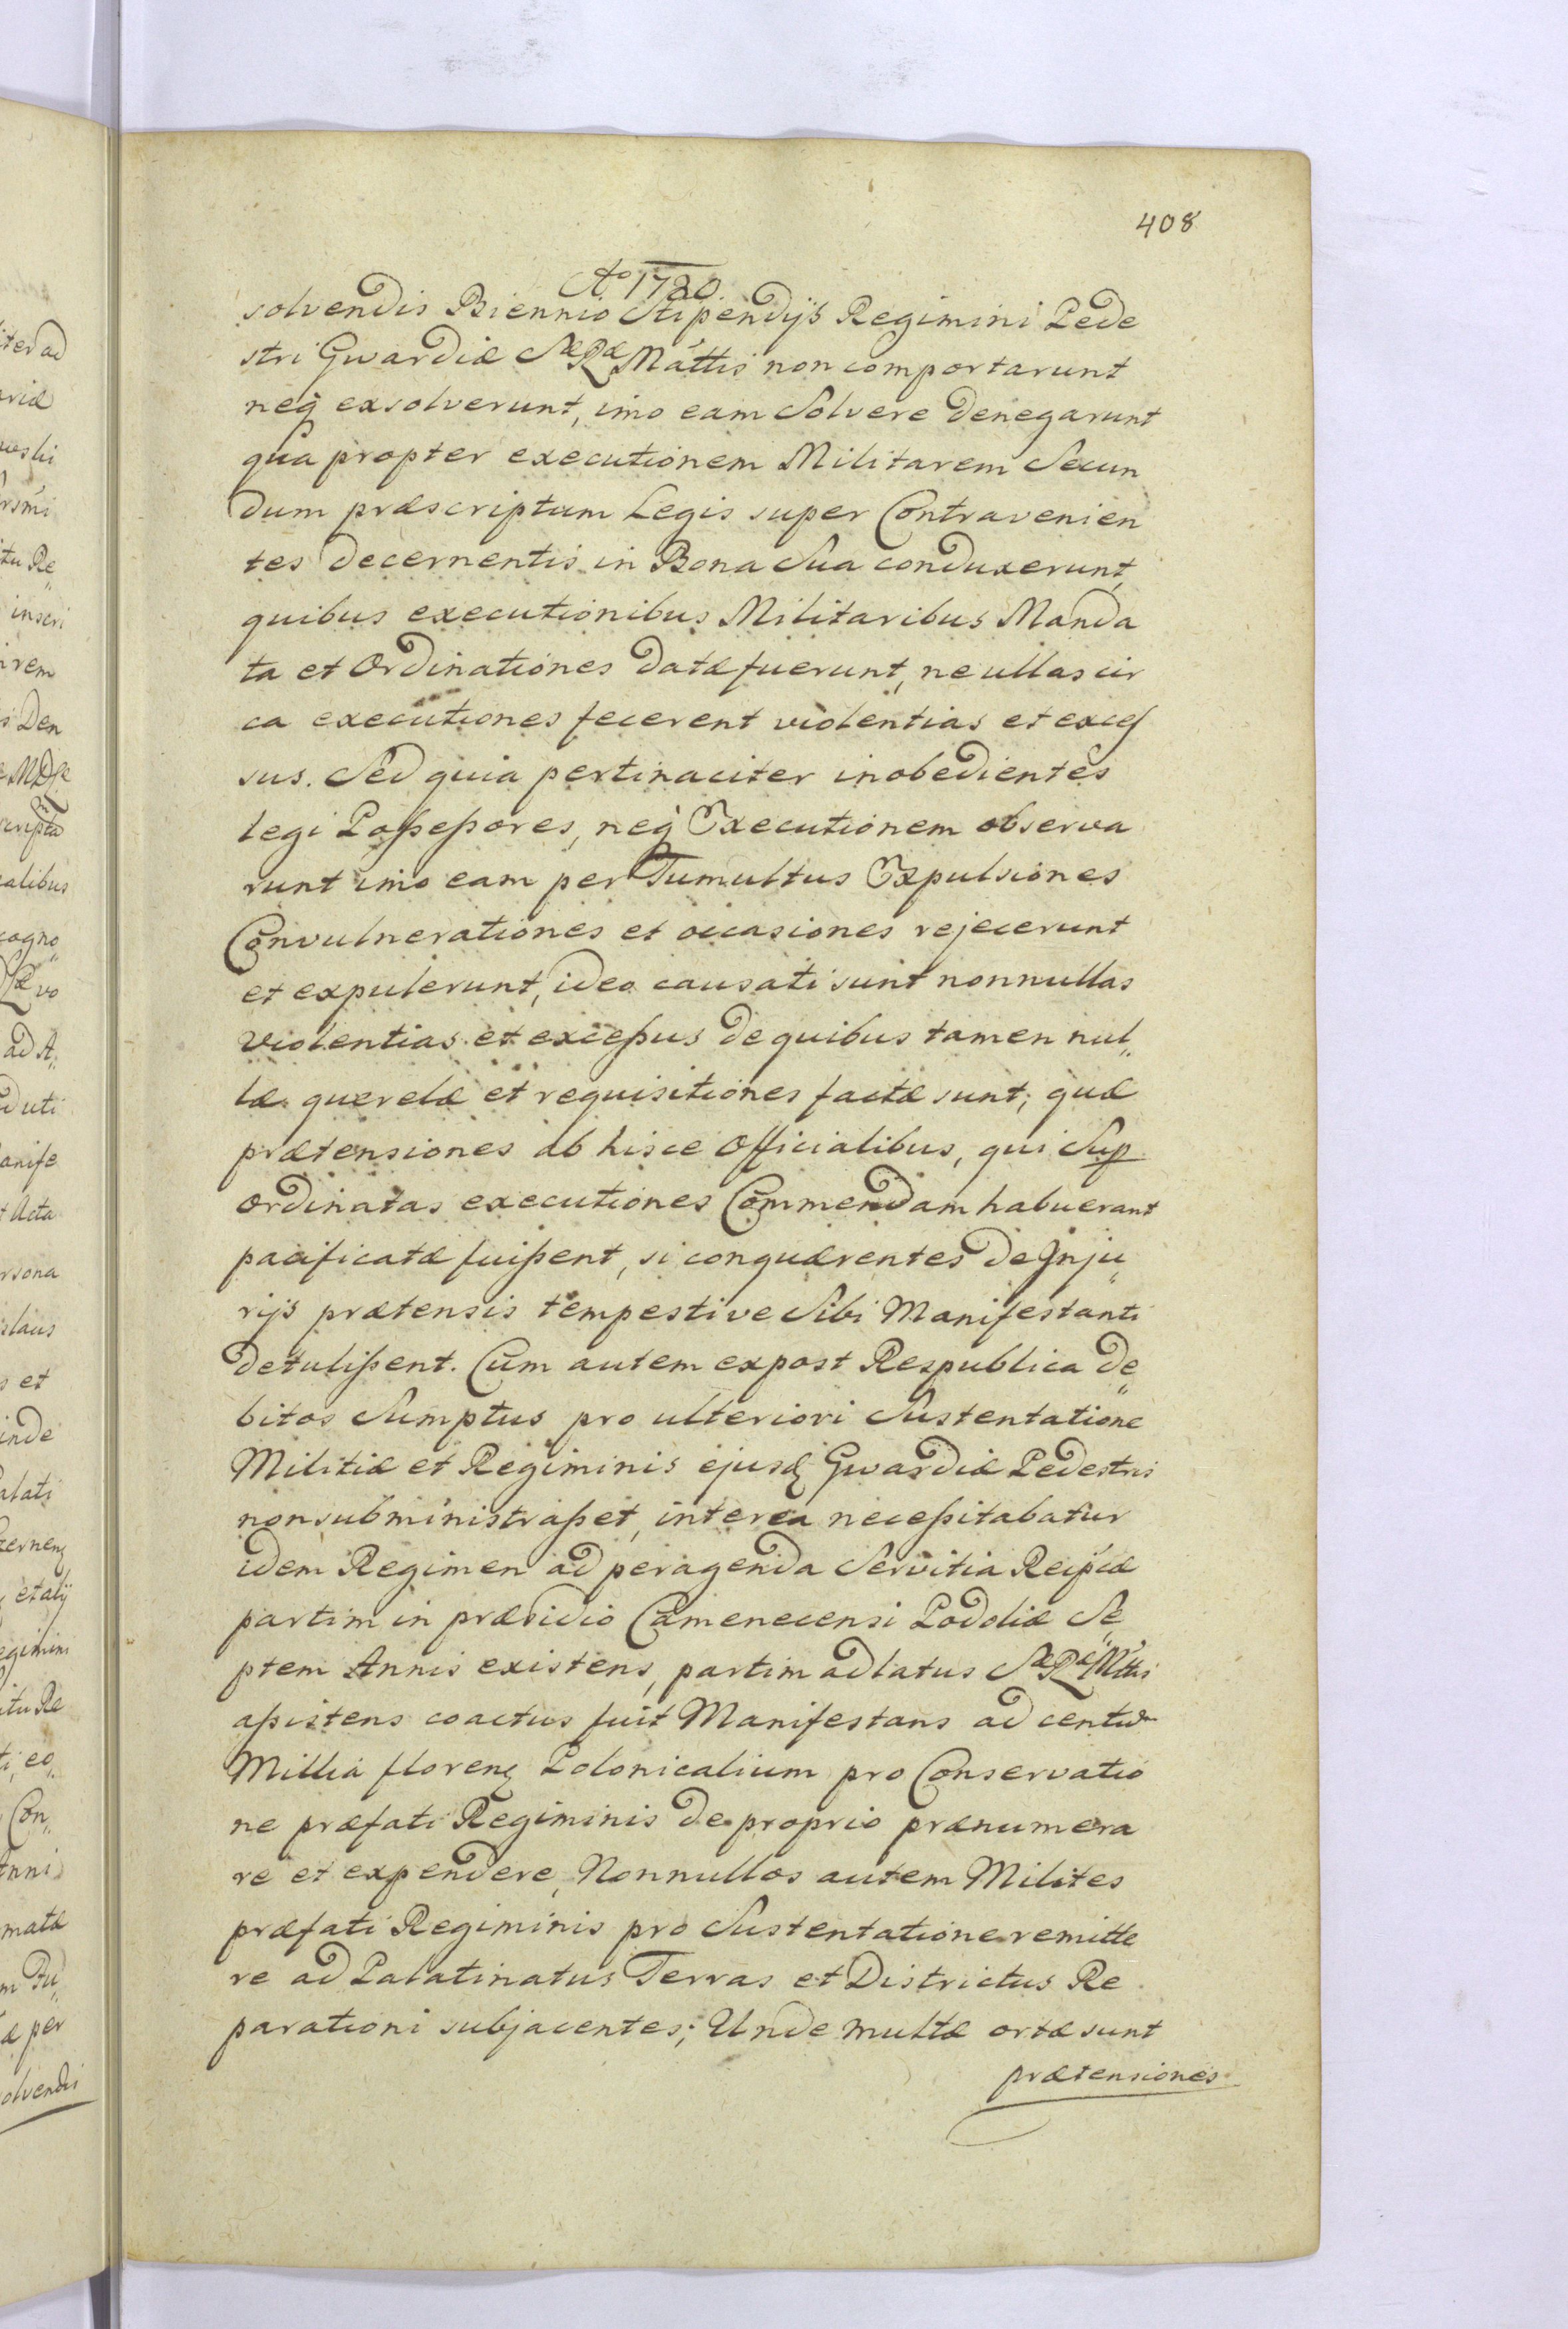 408
Aº 1720.
solvendis Biennio Stipendijs Regimini Pede
stri Gwardiæ Sæ Ræ Mattis non comportarunt
neq exsolverunt, imo eam Solvere denegarunt
qua propter executionem Militarem Secun
dum præscriptum Legis super Contravenien
tes decernentis in Bona Sua conduxerunt,
quibus executionibus Militaribus Manda
ta et Ordinationes datæ fuerunt, ne ullas cir
ca executiones fecerent violentias et exces
sus. Sed quia pertinaciter inobedientes
legi Possessores, neq Executionem observa
runt imo eam per Tumultus Expulsiones
Convulnerationes et occasiones rejecerunt
et expulerunt, ideo causati sunt nonnullas
violentias et excessus de quibus tamen nul„
læ querelæ et requisitiones factæ sunt; quæ
prætensiones ab hisce Officialibus, qui Sup
ordinatas executiones Commendam habuerant
pacificatæ fuissent, si conquærentes de Inju„
rijs prætensis tempestive Sibi Manifestanti
detulissent. Cum autem expost Respublica de„
bitos Sumptus pro ulteriori Sustentatione
Militiæ et Regiminis ejusq Gwardiæ Pedestris
non subministrasset, interea necessitabatur
idem Regimen ad peragenda Servitia Reipcæ
partim in præsidio Camenecensi Podoliæ Se„
ptem Annis existens, partim ad latus Sæ Ræ Mttis
assistens coactus fuit Manifestans ad centum
Millia floreng Polonicalium pro Conservatio
ne præfati Regiminis de proprio prænumera
re et expendere, Nonnullos autem Milites
præfati Regiminis pro Sustentatione remitte
re ad Palatinatus Terras et Districtus Re
parationi subjacentes; Unde multæ ortæ sunt
prætensiones